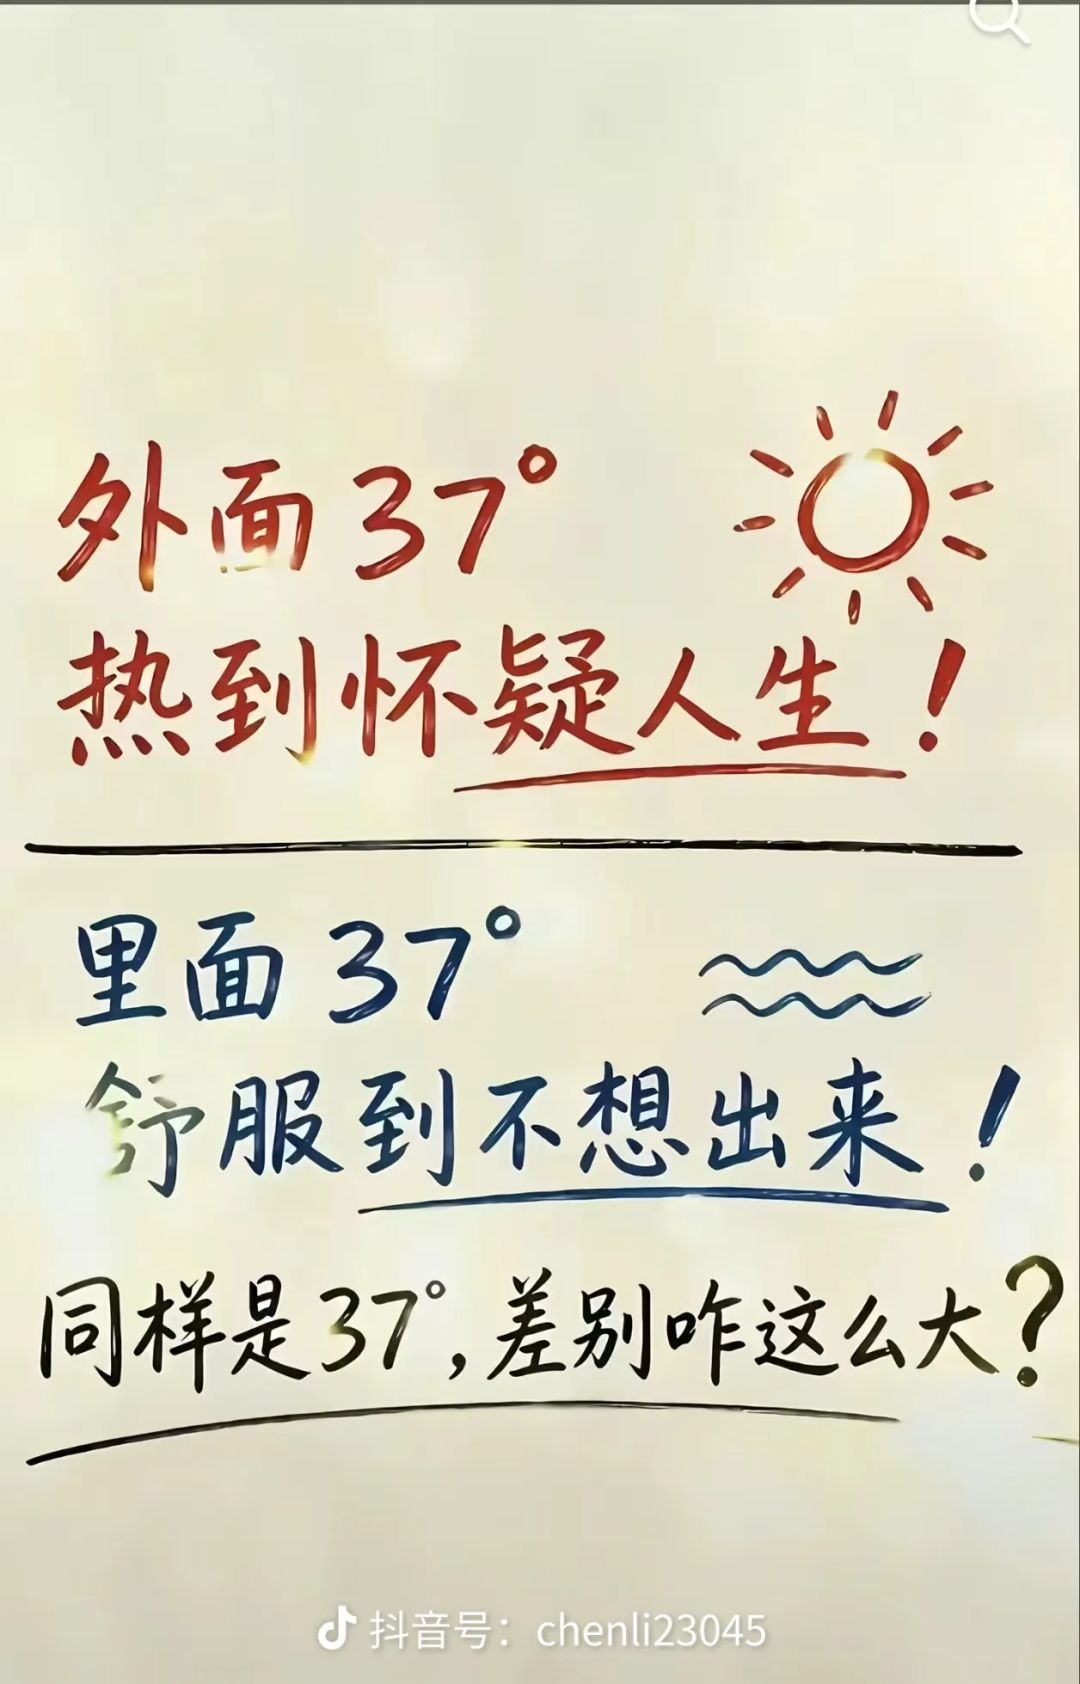 外面37°
热到怀疑人生！
里面37°
舒服到不想出来！
同样是37°，差别咋这么大？
抖音号：chenli23045